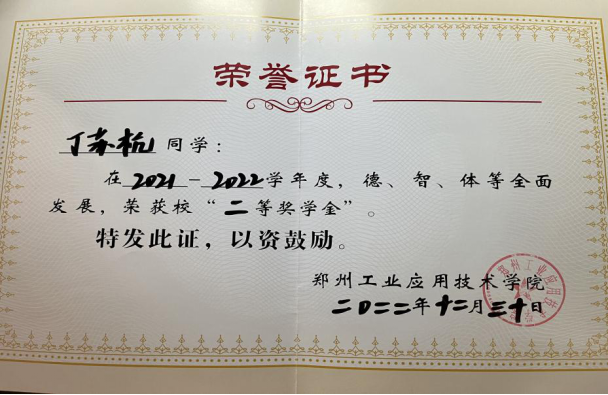 荣誉证书
丁苏杭 同学：
在 2021-2022 学年度，德、智、体等全面
发展，荣获校“二等奖学金”。
特发此证，以资鼓励。
郑州工业应用技术学院
二〇二二年十二月三十日